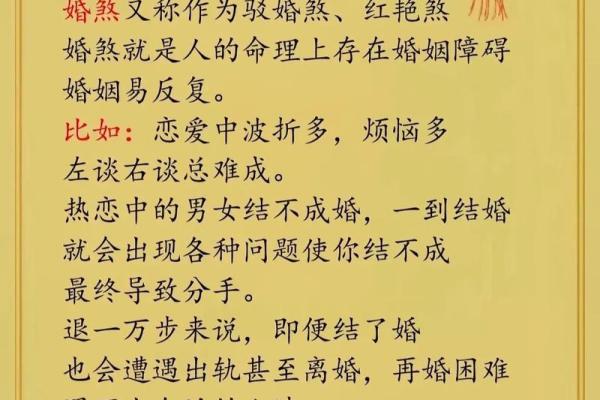 婚煞又称作为驳婚煞、红艳煞
婚煞就是人的命理上存在婚姻障碍
婚姻易反复。
比如：恋爱中波折多，烦恼多
左谈右谈总难成。
热恋中的男女结不成婚，一到结婚
就会出现各种问题使你结不成
最终导致分手。
退一万步来说，即便结了婚
也会遭遇出轨甚至离婚，再婚困难